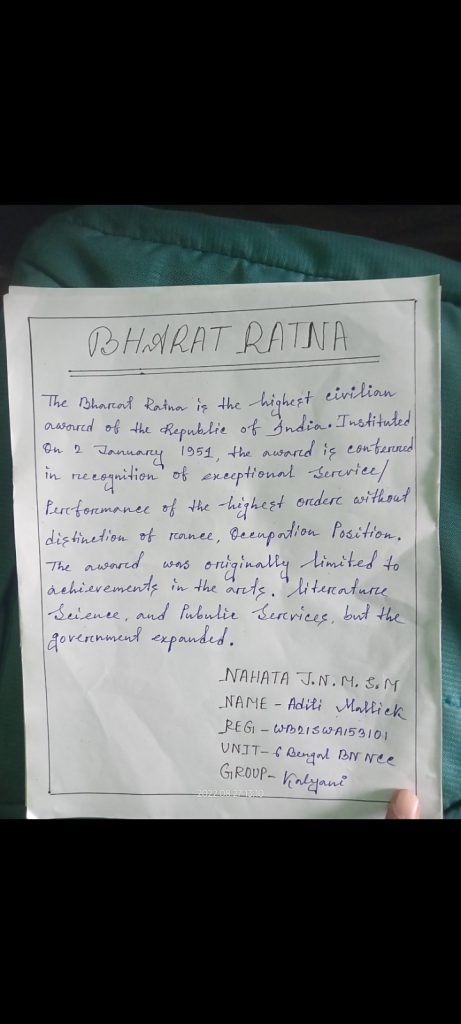 BHARAT RATNA
The Bharat Ratna is the highest civilian
award of the Republic of India. Instituted
On 2 January 1951, the award is conferred
in recognition of exceptional Service/
Performance of the highest order without
distinetion of rance, Occupation Position.
The award was originally limited to
achievements in the arts. literature
Science, and Pubulic Services, but the
government expanded.
NAHATA J.N.M.S.M
NAME - Aditi Mallick
REGI - WB21SWA153101
UNIT - 6 Bengal BN NCC
GROUP - Kalyani
2022.08.27 13:10